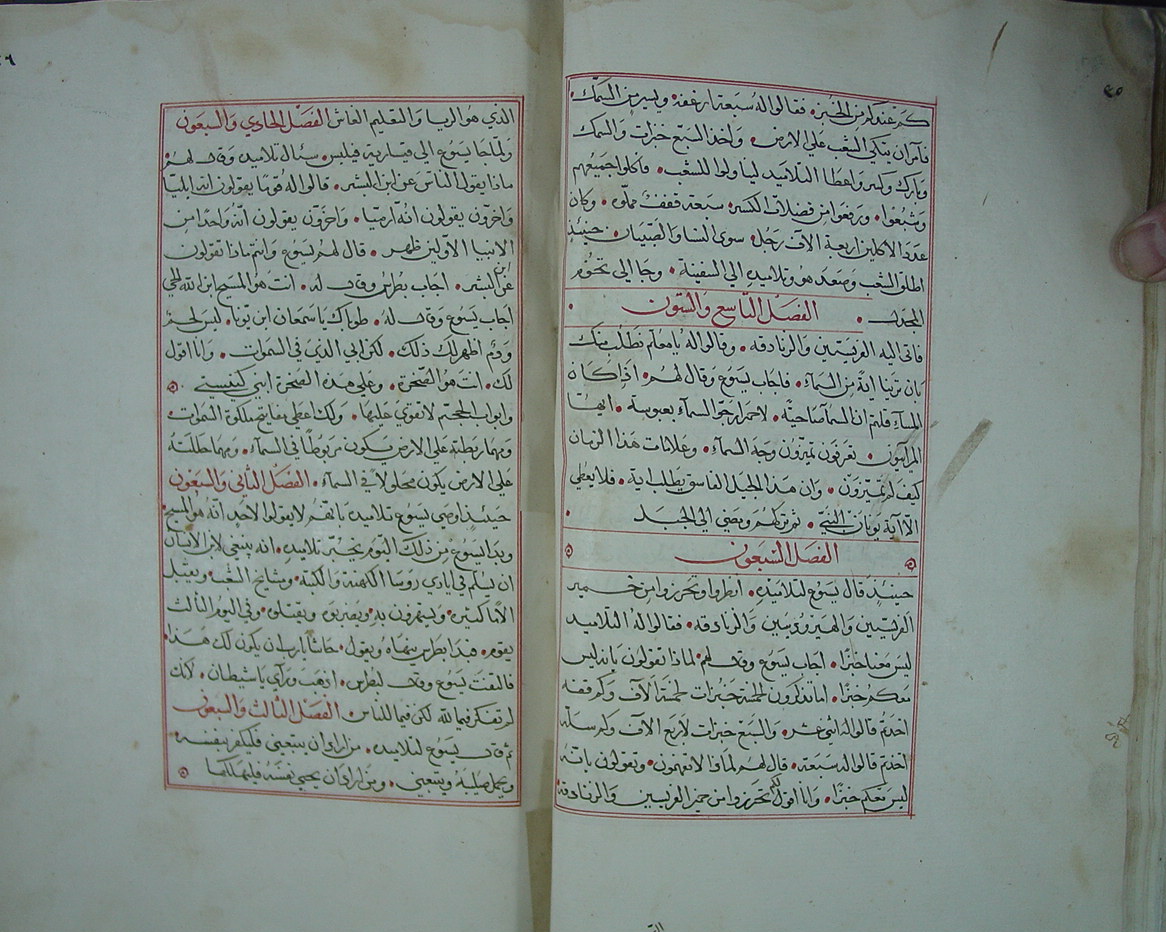 ٤٥
كم عندكم من الخبز. فقالوا له سبعة ارغفة. ويسير من السمك.
فأمر ان يتكي الشعب على الارض. واخذ السبع خبزات والسمك
وبارك وكسر واعطا التلاميذ ليناولوا للشعب. فاكلوا جميعهم
وشبعوا. ورفعوا من فضلات الكسر سبعة قفف مملوه. وكان
عدد الاكلين اربعة الاف رجل. سوى النسا والصبيان. حينئذ
اطلق الشعب وصعد هو وتلاميذه الي السفينة. وجا الي تخوم
المجدل. الفصل التاسع والستون
فاتى اليه الفريسيين والزنادقه. وقالوا له يا معلم نطلب منك
بان ترينا اية من السمآء. فاجاب يسوع وقال لهم. اذا كان
المسآء قلتم ان السما صاحية. لاحمرار جو السمآء بعبوسة. ايها
المرآيون. تعرفون تميزون وجه السمآء. وعلامات هذا الزمان
كيف لم تميزون. وان هذا الجيل الفاسق يطلب اية. فلا يعطي
الا آية يونان النبي. ثم تركهم ومضى الي الجبل
الفصل السبعون
حينئذ قال يسوع لتلاميذه. انظروا وتحرزوا من خمير
الفريسيين والهيرودسيين والزنادقه. فقالوا له التلاميذ
ليس معنا خبزا. اجاب يسوع وقال لهم لماذا تقولون بان ليس
معكم خبزا. اما تذكرون الخمسة خبزات لخمسة الاف وكم قفة
اخذتم قالوا له اثني عشر. والسبع خبزات لاربع الاف وكم سلة
اخذتم قالوا له سبعة. قال لهم لماذا لا تفهمون. وتقولون بانه
ليس معكم خبزا. وانا اقول لكم تحرزوا من خمير الفريسيين والزنادقة
الذي هو الريا والتعليم الغاش الفصل الحادي والسبعون
ولما جا يسوع الى قيسارية فيلبس. سئال تلاميذه وقال لهم
ماذا يقول الناس عن ابن البشر. قالوا له قوما يقولون انه ايليا
واخرون يقولون انه ارميا. واخرون يقولون انه واحدا من
الانبيا الاولين ظهر. قال لهم يسوع وانتم ماذا تقولون
عن ابن البشر. اجاب بطرس وقال له. انت هو المسيح ابن الله الحي
اجاب يسوع وقال له. طوباك يا سمعان ابن يونا. ليس لحم
ودم اظهر لك ذلك. لكن ابي الذي في السموات. وانا اقول
لك. انت هو الصخرة. وعلي هذه الصخرة ابني كنيستي.
وابواب الجحيم لا تقوي عليها. ولك اعطي مفاتيح ملكوة السموات.
ومهما ربطته على الارض يكون مربوطا في السمآء. ومهما حللته
علي الارض يكون محلولا في السمآء. الفصل الثاني والسبعون
حينئذ اوصى يسوع تلاميذه بانهم لا يقولوا لاحد انه هو المسيح
وبدا يسوع من ذلك اليوم يخبر تلاميذه. انه ينبغي لابن الانسان
ان يسلم في ايادي روسا الكهنة والكتبة. ومشايخ الشعب. ويقبل
الاما كثيره. ويستهزون به ويضربوه ويقتلوه. وفي اليوم الثالث
يقوم. فبدا بطرس ينهاه ويقول. حاشا يارب ان يكون لك هذا.
فالتفت يسوع وقال لبطرس. اذهب ورآي يا شيطان. لانك
لم تفكر فيما لله لكن فيما للناس. الفصل الثالث والسبعون
ثم قال يسوع لتلاميذه. من اراد ان يتبعني فليكفر بنفسه
ويحمل صليبه ويتبعني. ومن اراد ان يحيي نفسه فليهلكها